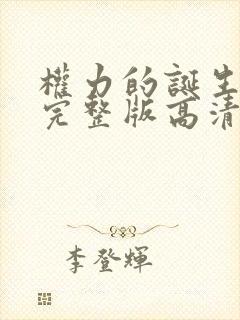 權力的誕生
完整版高清
李登輝